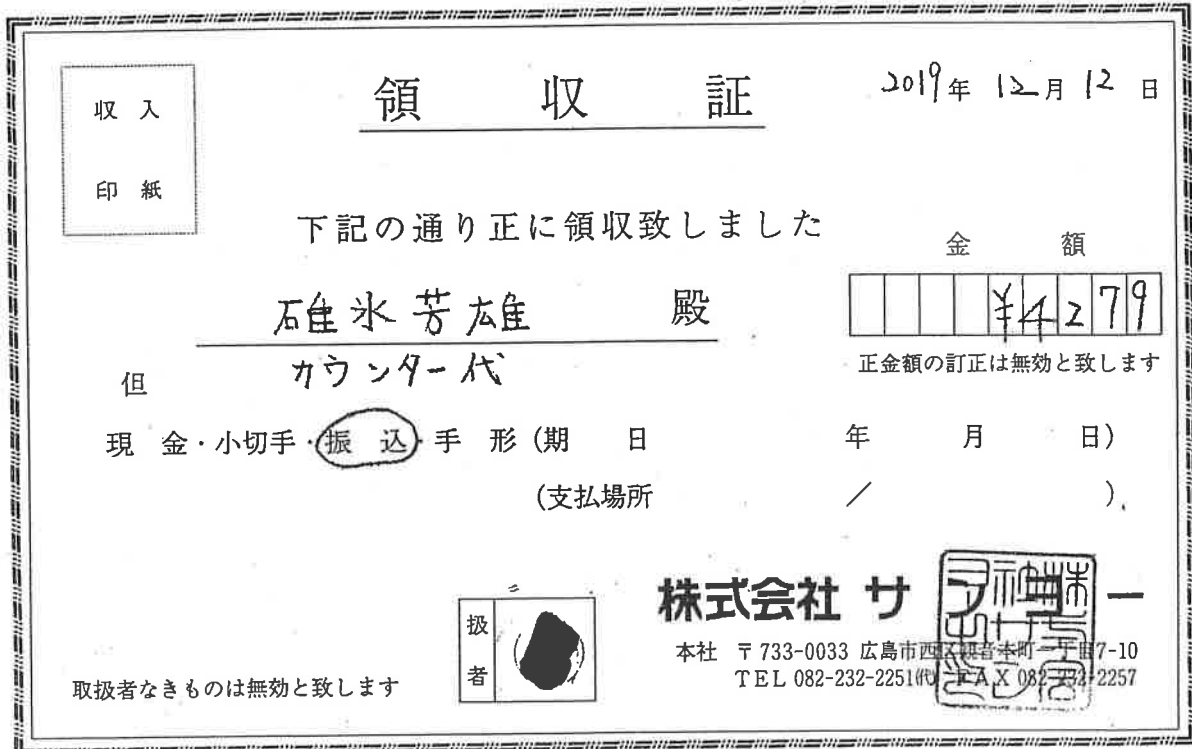 領収証
2019年 12月 12日
収入
印紙
下記の通り正に領収致しました
金額
碓氷芳雄 殿
¥4279
正金額の訂正は無効と致します
但 カウンター代
現金・小切手・振込・手形 (期日 年 月 日)
(支払場所 / )
株式会社 サンコー
扱者
本社 〒733-0033 広島市西区観音本町一丁目7-10
TEL 082-232-2251㈹ FAX 082-232-2257
取扱者なきものは無効と致します